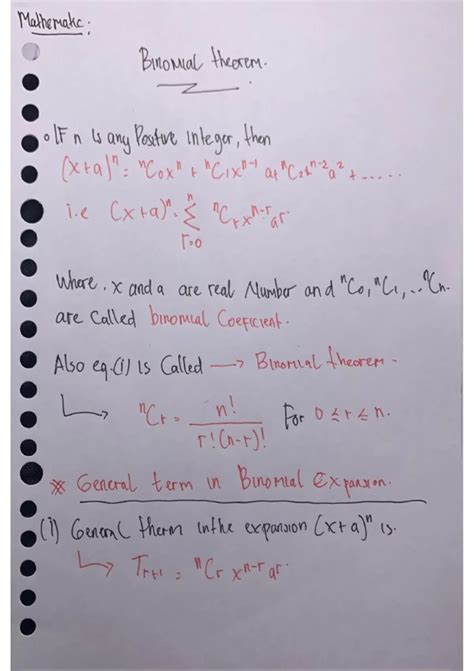 Mathematic:
Binomial theorem.
o IF n is any Positive integer, then
(x+a)ⁿ = ⁿC₀xⁿ + ⁿC₁xⁿ⁻¹ a + ⁿC₂xⁿ⁻² a² + .....
i.e (x+a)ⁿ = ⁿΣr=0 ⁿCr xⁿ⁻ʳ aʳ.
Where . x and a are real Number and ⁿC₀, ⁿC₁, ... ⁿCn.
are Called binomial Coeficient.
Also eq.(i) is Called → Binomial theorem.
↳ ⁿCr = n! / r!(n-r)! For 0 ≤ r ≤ n.
※ General term in Binomial Expansion.
(i) General therm in the expansion (x+a)ⁿ is.
↳ Tr+1 = ⁿCr xⁿ⁻ʳ aʳ.